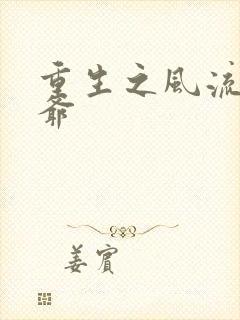 重生之風流
爺
姜賓